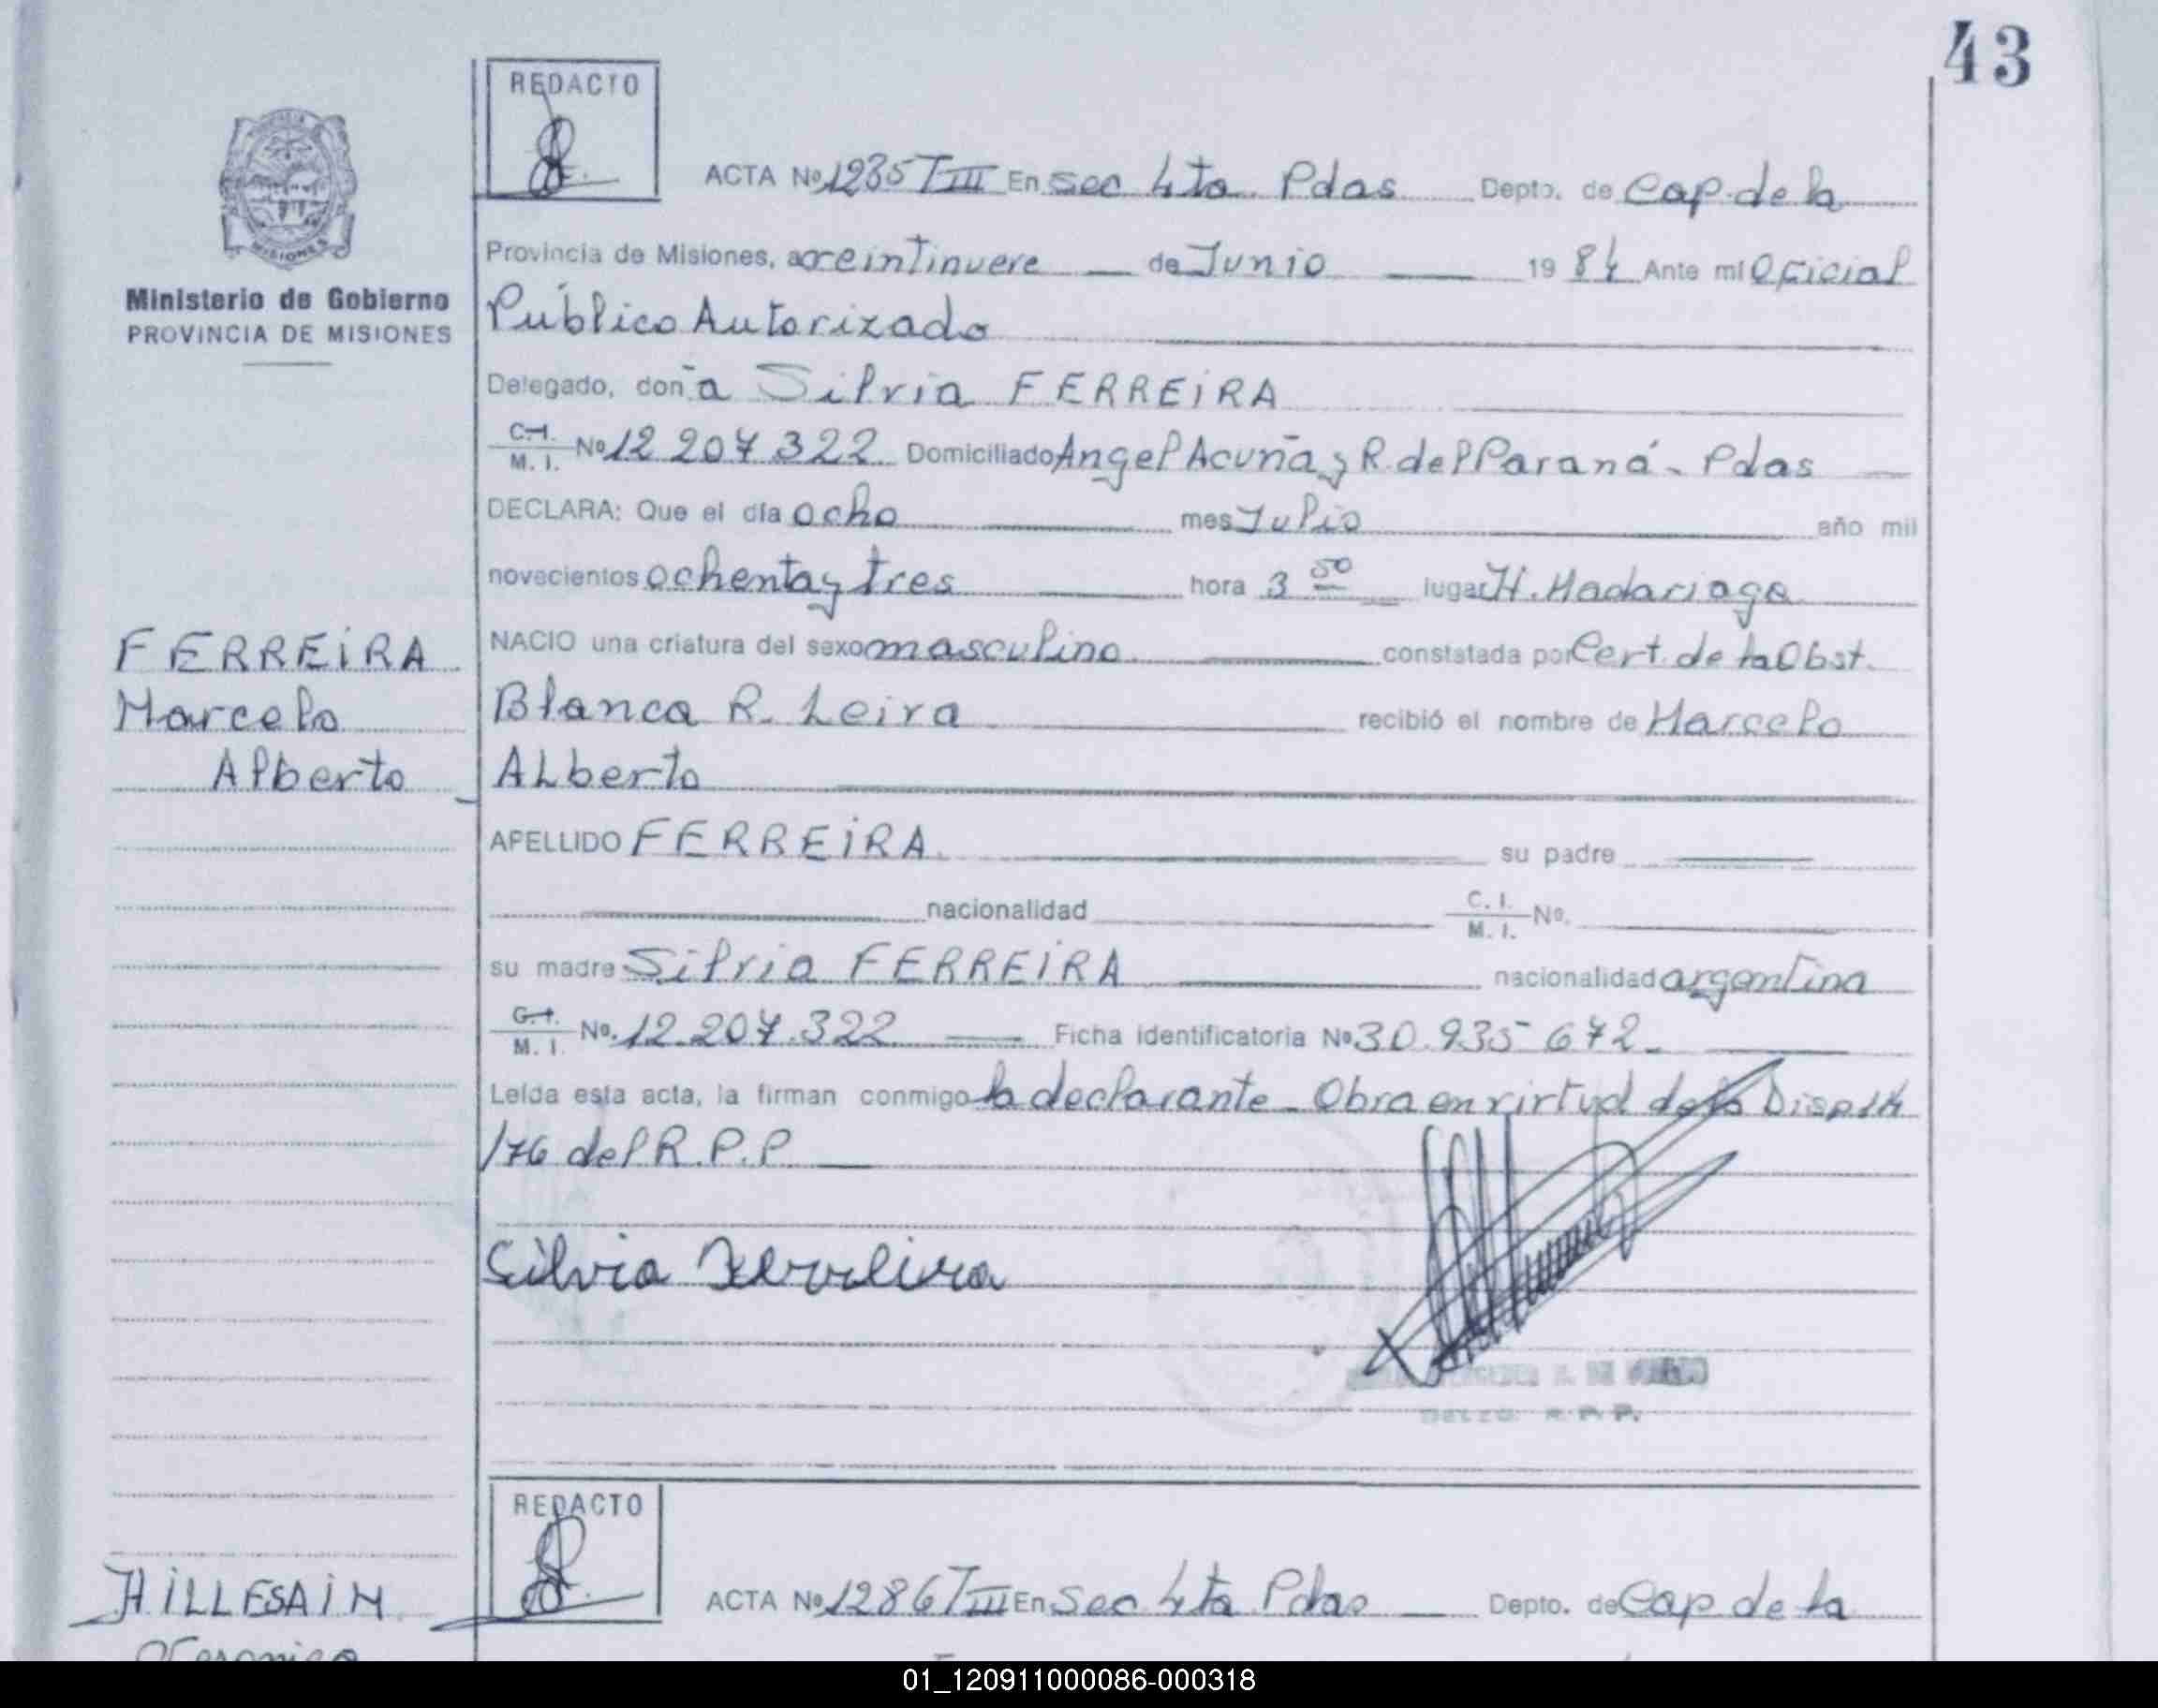 43
REDACTO
ACTA Nº 1285 T III En sec 4ta Pdas Depto. de Cap. de la
Ministerio de Gobierno
PROVINCIA DE MISIONES
Provincia de Misiones, a veintinueve de Junio 19 84 Ante mi Oficial
Público Autorizado
Delegado, don ã Silvia FERREIRA
C.I. M. I. Nº 12 207 322 Domiciliado Angel Acuña y R. del Paraná - Pdas
DECLARA: Que el día ocho mes Julio año mil
novecientos ochenta y tres hora 3 50 lugar H. Madariaga
NACIO una criatura del sexo masculino constatada por Cert. de la Obst.
Blanca R. Leiva recibió el nombre de Marcelo
Alberto
FERREIRA
Marcelo
Alberto
APELLIDO FERREIRA su padre
nacionalidad C. I. M. I. Nº.
su madre Silvia FERREIRA nacionalidad argentina
C.I. M. I. Nº. 12.207.322 Ficha identificatoria Nº 30.935 672.
Leída esta acta, la firman conmigo la declarante - Obra en virtud de la Disp.
/76 del R.P.P
Silvia Ferreira
R. P. P.
REDACTO
ACTA Nº 1286 T III En Sec 4ta Pdas Depto. de Cap de la
HILLESAIM